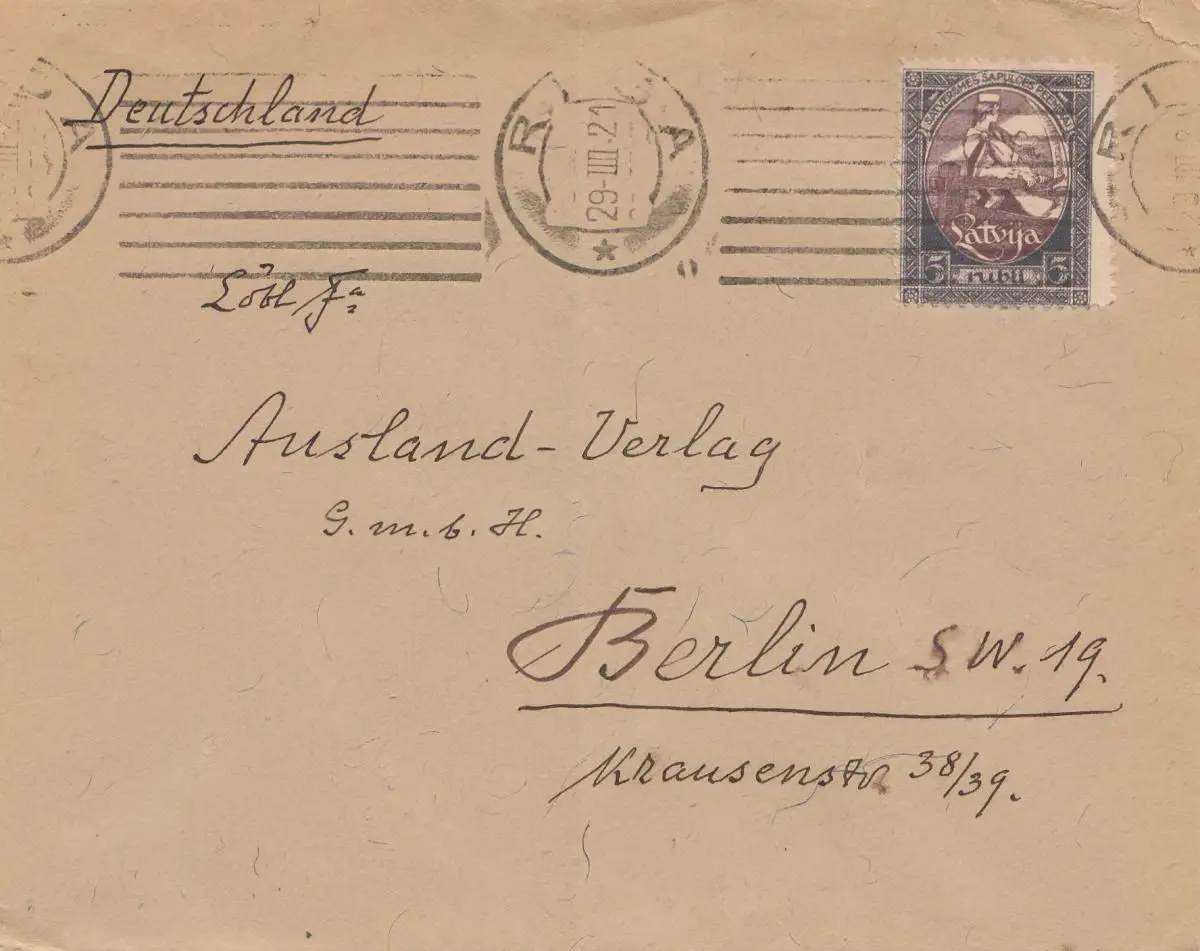 Deutschland
RIGA
29-III-21
SATVERSMES SAPULCES PEEMIŅAI
Latvija
5 rubļi 5
Löbl Fa
Ausland-Verlag
G.m.b.H.
Berlin SW. 19.
Krausenstr 38/39.